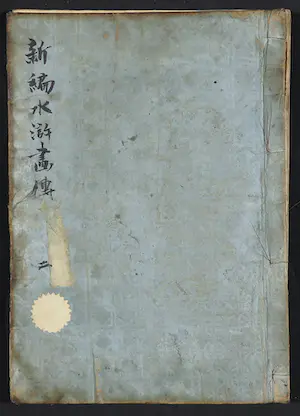 新編水滸畫傳 二